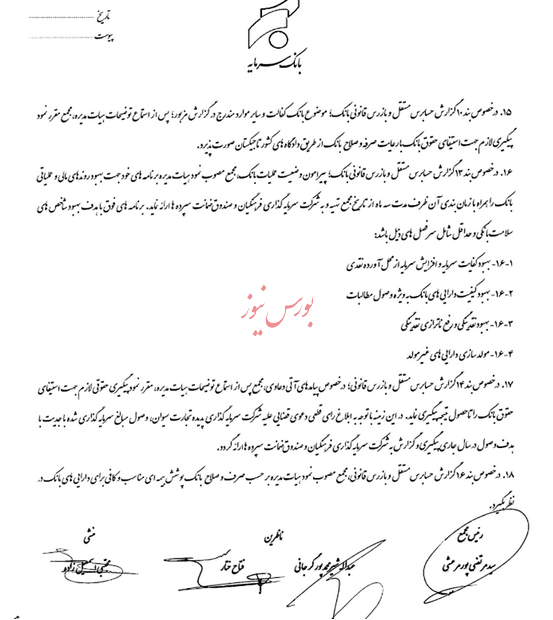 تاریخ
پیوست
بانک سرمایه
۱۵. در خصوص بند ۱۰ گزارش حسابرس مستقل و بازرس قانونی بانک؛ موضوع بانک کفالت و سایر موارد مندرج در گزارش مزبور؛ پس از استماع توضیحات هیات مدیره، مجمع مقرر نمود
پیگیری لازم جهت استیفای حقوق بانک با رعایت صرفه و صلاح بانک از طریق دادگاه های کشور تاجیکستان صورت پذیرد.
۱۶. در خصوص بند ۱۳ گزارش حسابرس مستقل و بازرس قانونی بانک؛ پیرامون وضعیت عملیات بانک، مجمع مصوب نمود هیات مدیره برنامه های خود جهت بهبود روندهای مالی و عملیاتی
بانک را همراه با زمان بندی آن ظرف مدت سه ماه از تاریخ مجمع تهیه و به شرکت سرمایه گذاری فرهنگیان و صندوق ضمانت سپرده ها ارائه نماید. برنامه های فوق با هدف بهبود شاخص های
سلامت بانکی و حداقل شامل سرفصل های ذیل باشد:
۱۶-۱- بهبود کفایت سرمایه و افزایش سرمایه از محل آورده نقدی
۱۶-۲- بهبود کیفیت دارایی های بانک به ویژه وصول مطالبات
۱۶-۳- بهبود نقدینگی و رفع ناترازی نقدینگی
۱۶-۴- مولدسازی دارایی های غیرمولد
بورس نیوز
۱۷. در خصوص بند ۱۴ گزارش حسابرس مستقل و بازرس قانونی؛ در خصوص پیامدهای آتی دعاوی، مجمع پس از استماع توضیحات هیات مدیره، مقرر نمود پیگیری حقوقی لازم جهت استیفای
حقوق بانک را تا حصول نتیجه پیگیری نماید. در این زمینه با توجه به ابلاغ رای قطعی دعوی قضایی علیه شرکت سرمایه گذاری پدیده تجارت سیوان، وصول مبالغ سرمایه گذاری شده با جدیت با
هدف وصول در سال جاری پیگیری و گزارش به شرکت سرمایه گذاری فرهنگیان و صندوق ضمانت سپرده ها ارائه گردد.
۱۸. در خصوص بند ۱۶ گزارش حسابرس مستقل و بازرس قانونی، مجمع مصوب نمود هیات مدیره بر حسب صرف و صلاح بانک پوشش بیمه ای مناسب و کافی برای دارایی های بانک در
نظر بگیرد.
رئیس مجمع ناظرین منشی
سید مرتضی پورمرعشی عبداله شیرمحمدپور گرجانی فتاح ختار مجتبی اسمعیل زاده